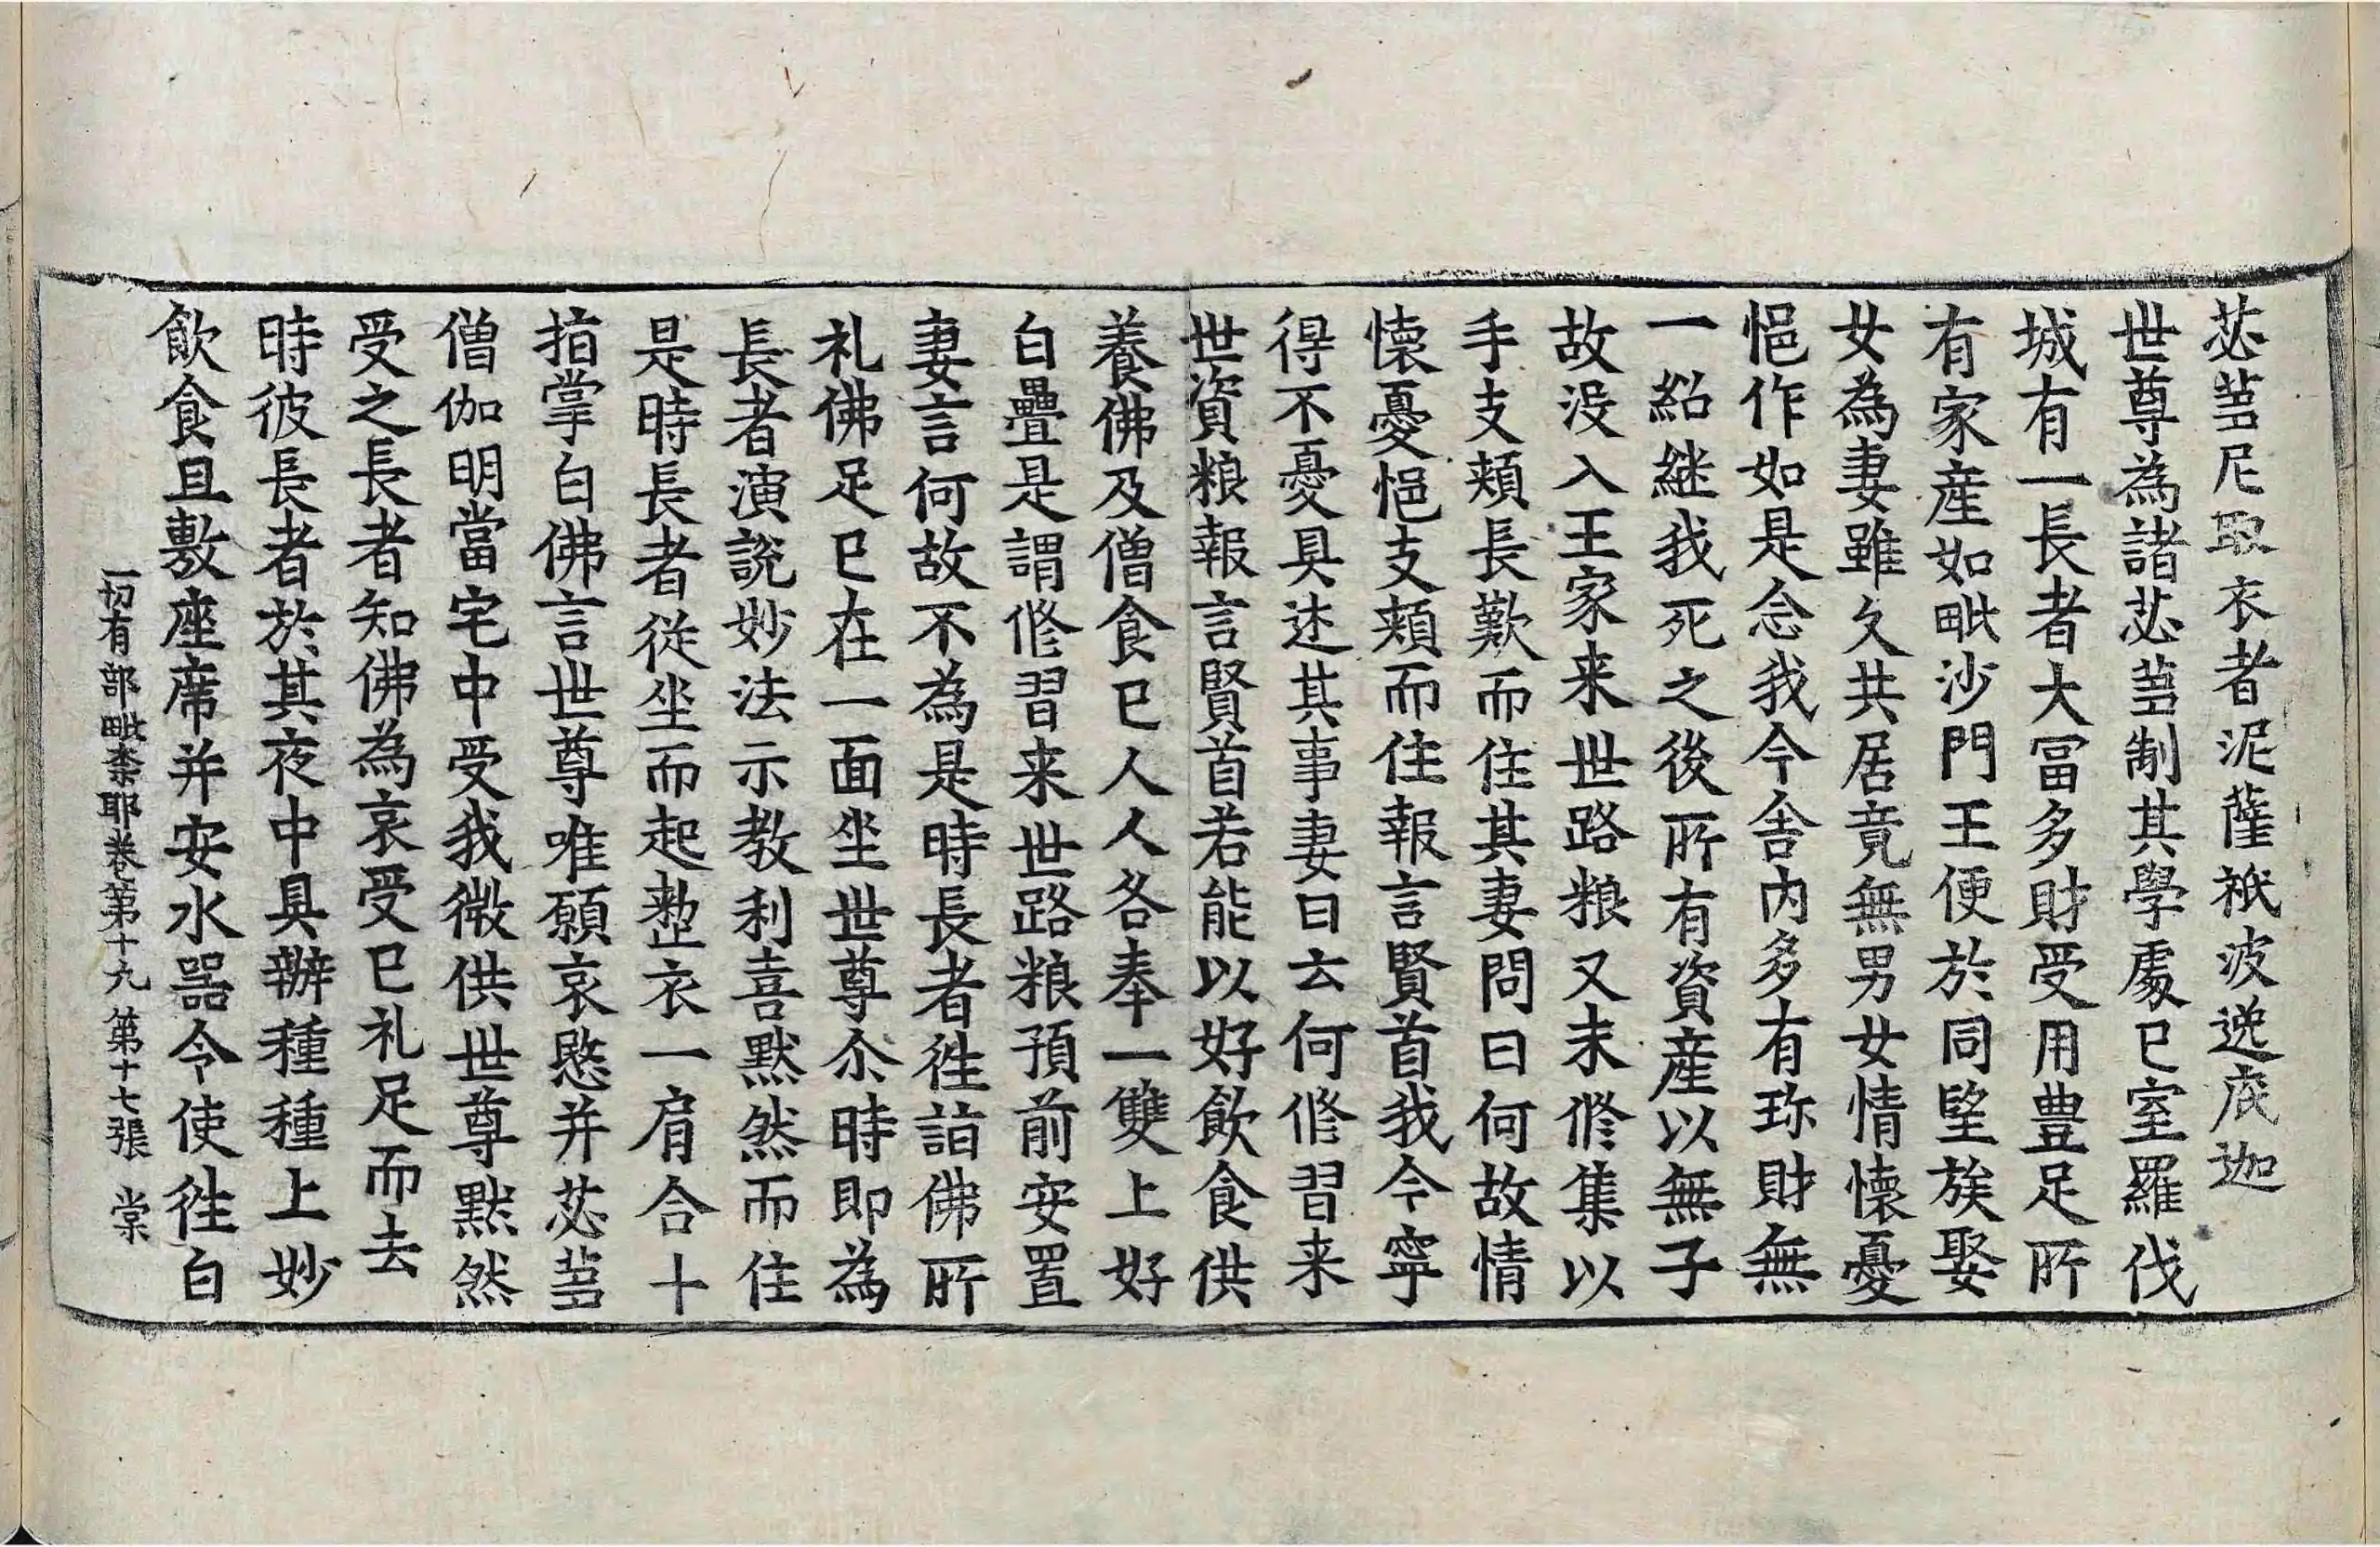 苾蒭尼取衣者泥薩祇波逸底迦
世尊為諸苾蒭制其學處已室羅伐
城有一長者大冨多財受用豊足所
有家産如毗沙門王便於同望族娶
女為妻雖久共居竟無男女情懷憂
悒作如是念我今舍内多有珎財無
一紹継我死之後所有資産以無子
故没入王家来世路粮又未修集以
手支頰長歎而住其妻問曰何故情
懷憂悒支頰而住報言賢首我今寧
得不憂具述其事妻曰云何修習来
世資粮報言賢首若能以好飲食供
養佛及僧食已人人各奉一雙上好
白疊是謂修習来世路粮預前安置
妻言何故不為是時長者徃詣佛所
礼佛足已在一面坐世尊尒時即為
長者演説妙法示教利喜默然而住
是時長者從坐而起整衣一肩合十
指掌白佛言世尊唯願哀愍并苾蒭
僧伽明當宅中受我微供世尊默然
受之長者知佛為哀受已礼足而去
時彼長者於其夜中具辦種種上妙
飲食且敷座席并安水器令使徃白
一切有部毗柰耶卷第十九 第十七張 棠